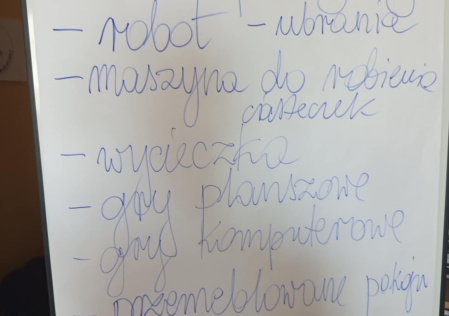 - robot - ubrania
- maszyna do robienia
ciasteczek
- wycieczka
- gry planszowe
- gry komputerowe
- przemeblowane pokoju